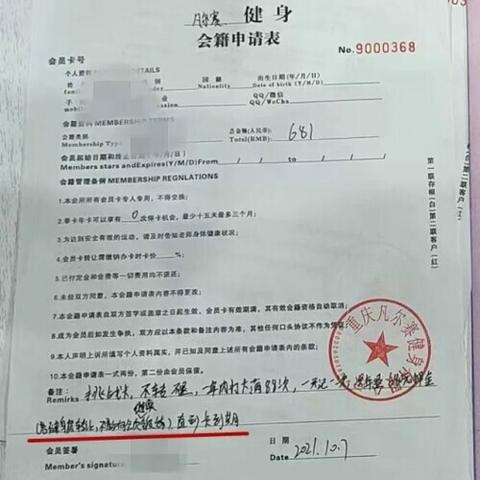 凡尔赛 健身
会籍申请表
No.9000368
会员卡号
个人资料 DETAILS
姓 别 国籍 出生日期(年/月/日)
Nationality Date of birth (Y/M/D)
手 QQ/微信
QQ/WeCha
会籍资料 MEMBERSHIP TERMS
会籍类别 总金额(人民币): 681
Membership Typ Total(RMB):
会员起始日期和终止日 年/月/日)
Members stars andExpires(Y/M/D)From / / to / /
会籍管理条例 MEMBERSHIP REGNLATIONS
1.本会所所有会员卡专人专用,不得交换;
2.季卡年卡可以享有 0 次停卡机会,最少十五天最多三个月;
3.为达到安全有效的运动,请及时告知老师身体健康状况;
4.会员卡转让需缴纳办卡时卡价 %;
5.已付定金和会费等一切费用均不退还;
6.未经双方同意,本会籍申请表内容不得更改;
7.本会籍申请表自双方签字或盖章之日起生效,会员卡有效期满,其有效会籍资格自动取消;
8.成为会员后如发生争执,双方应以本条款和备注内容为准,其他任何口头协议不作为凭证
9.本人声明上诉所填写个人资料真实,并已知及同意上述所有会籍申请表内的条款;
10.本会籍申请表一式两份,第二份由会员保留。
备注: 挑战卡,不转不退,一年内打卡满88次,一天记一次,
Remirks
继续
直到卡到期
会员签署 日期
Member's signatur 2021.10.7
重庆凡尔赛健身
第一联存根(白)第二联客户(红)